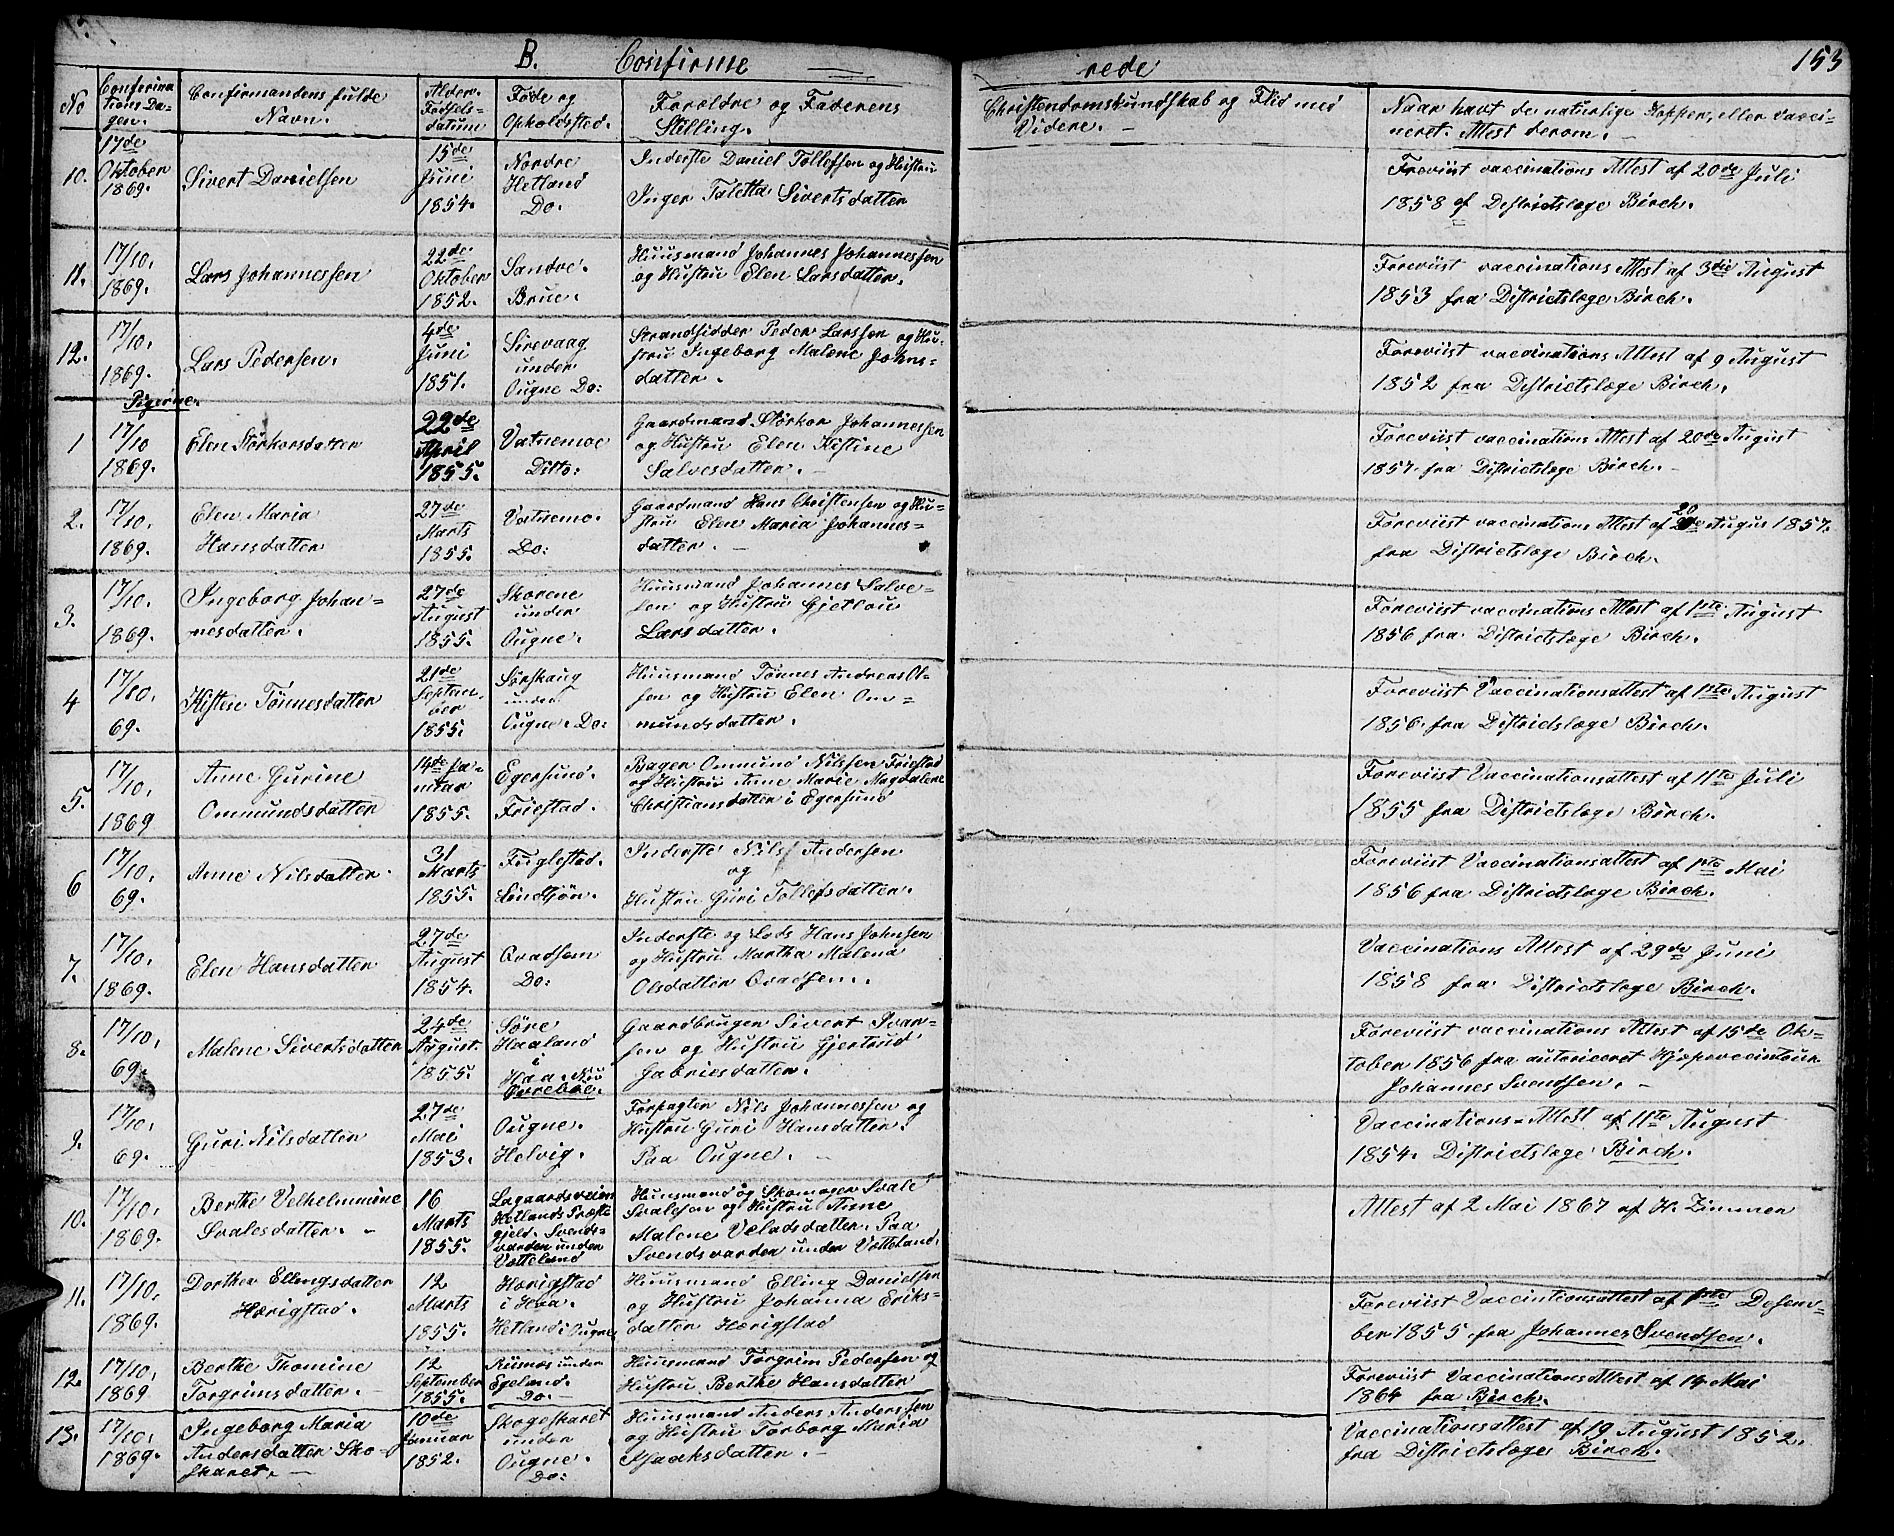 B. Confirme rede 153
No
Confirma
tions Da-
gen.
Confirmandens fulde
Navn.
Alder.
Fødsels-
datum
Føde og
Opholdsted.
Forældre og Faderens
Stilling.
Christendomskundskab og Flid med
Videre. -
Naar havt de naturlige Kopper, eller vacci-
neret. Attest derom. -
10.
17de
Oktober
1869.
Sivert Danielsen
15de
Juni
1854.
Nordre
Hetland
Do.
Inderste Daniel Tollefsen og Hustru
Inger Taletta Sivertsdatter
Foreviist vaccinations Attest af 20de Juli
1858 af Districtslæge Birch.
11.
17/10.
1869.
Lars Johannessen
22de
Oktober
1852.
Sandve.
Brue.
Huusmand Johannes Johannessen
og Hustru Elen Larsdatter.
Foreviist vaccinations Attest af 3die August
1853 fra Districtslæge Birch.
12.
17/10.
1869.
Lars Pedersen.
4de
Juni
1851.
Sirevaag
under
Ougne Do:
Strandsidder Peder Larssen og Hu-
stru Ingeborg Malene Johns-
datter.
Foreviist vaccinations Attest af 9 August
1852 fra Districtslæge Birch.
Pigerne.
1
17/10
1869.
Elen Störkorsdatter
22de
April
1855.
Vatnemoe
Ditto:
Gaardmand Störkor Johannessen
og Hustru Elen Kistine
Salvesdatter. -
Foreviist vaccinations Attest af 20de August
1857 fra Districtslæge Birch. -
2.
17/10.
1869.
Elen Maria
Hansdatter
27de
Marts
1855.
Vatnemo.
Do:
Gaardmand Hans Christensen og Hu-
stru Elen Maria Johannes-
datter. -
Foreviist vaccinations Attest af 20de Augus 1857.
fra Districtslæge Birch.
3.
17/10.
1869.
Ingeborg Johan-
nesdatter.
27de
August
1855.
Skorene
under
Ougne.
Huusmand Johannes Salve-
sen og Hustru Gjetlou
Larsdatter.
Foreviist vaccinations Attest af 1ste August
1856 fra Districtslæge Birch.
4
17/10.
69.
Kisten Tönnesdatter
21de
Septem-
ber
1855.
Sörskaug
under
Ougne. Do:
Huusmand Tönnes Andreas Ol-
sen og Hustru Elen Om-
mundsdatter.
Foreviist Vaccinationsattest af 1ste August
1856. fra Districtslæge Birch.
5.
17/10.
1869
Anne Gurine
Ommundsdatter
14de Ja-
nuar
1855.
Egersund.
Friestad.
Bager Ommund Nilssen Friestad
og Hustru Anne Marie Magdalene
Christiansdatter i Egersund
Foreviist Vaccinationsattest af 11te Juli
1855 fra Districtslæge Birch.
6
17/10.
69.
Anne Nilsdatter.
31
Marts
1855.
Fuglestad.
Lindtjön.
Inderste Nils Andersen
og
Hustru Guri Tollefsdatter.
Foreviist Vaccinationsattest af 1ste Mai
1856 fra Districtslæge Birch.
7.
17/10.
1869.
Elen Hansdatter
27de
August
1854.
Qvadsem
Do:
Inderste og Lods Hans Johnsen
og Hustru Martha Malena
Olsdatter Qvadsem.
Vaccinations Attest af 29de Juni
1858 fra Districtslæge Birch.
8.
17/10.
69.
Malene Sivertsdatter
24de
August.
1855.
Söre
Haaland
i
Haa. Nu
Øvrebøe.
Gaardbruger Sivert Ivar-
sen og Hustru Gjertrud
Gabrielsdatter.
Foreviist vaccinations Attest af 15de Ok-
tober 1856 fra autoriceret Hjæpevccinteur
Johannes Svendsen. -
9.
17/10.
69.
Guri Nilsdatter
27de
Mai
1853.
Ougne.
Helvig.
Forpagter Nils Johannessen og
Hustru Guri Hansdatter.
Paa Ougne. -
Vaccinations-Attest af 11te August
1854. Districtslæge Birch.
10.
17/10.
1869.
Berthe Velhelmmine
Svalesdatter. -
16
Marts
1855.
Lagaardsveien
Hetlands Præste
gjeld. Svends-
varden under
Votteland
Huusmand og Skomager Svale
Svalesen og Hustru Anne
Malene Veladsdatter. Paa
Svendsvarden under Votteland.
Attest af 2 Mai 1867 af H. Zimmer
11.
17/10.
1869.
Dorthea Ellingsdatter
Hærigstad.
12
Marts
1855.
Hærigstad
i Haa.
Hetland i Ougne.
Huusmand Elling Danielsen
og Hustru Johanna Eriks-
datter Hærigstad
Foreviist Vaccintionsattest af 1ste Desem-
ber 1855 fra Johannes Svendsen.
12.
17/10.
1869
Berthe Thomine
Torgrimsdatter. -
12
September
1855.
Riisnæs under
Egeland.
Do. -
Huusmand Torgrim Pedersen og
Hustru Berthe Hansdatter
Foreviist Vaccinations Attest af 14 Mai
1864 fra Birch.
13.
17/10.
1869.
Ingeborg Maria
Andersdatter Sko-
skaret. -
10de
Januar
1852.
Skogeskaret
under
Ougne.
Do:
Huusmand Anders Anderssen
og Hustru Torborg Maria
Isaaksdatter.
Vaccinationsattest af 19 August 1852.
fra Districtslæge Birch.